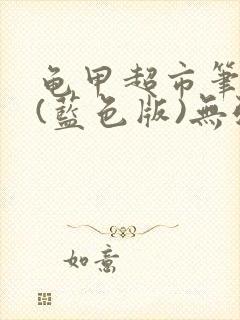 龟甲超市筆
(藍色版)無
如意